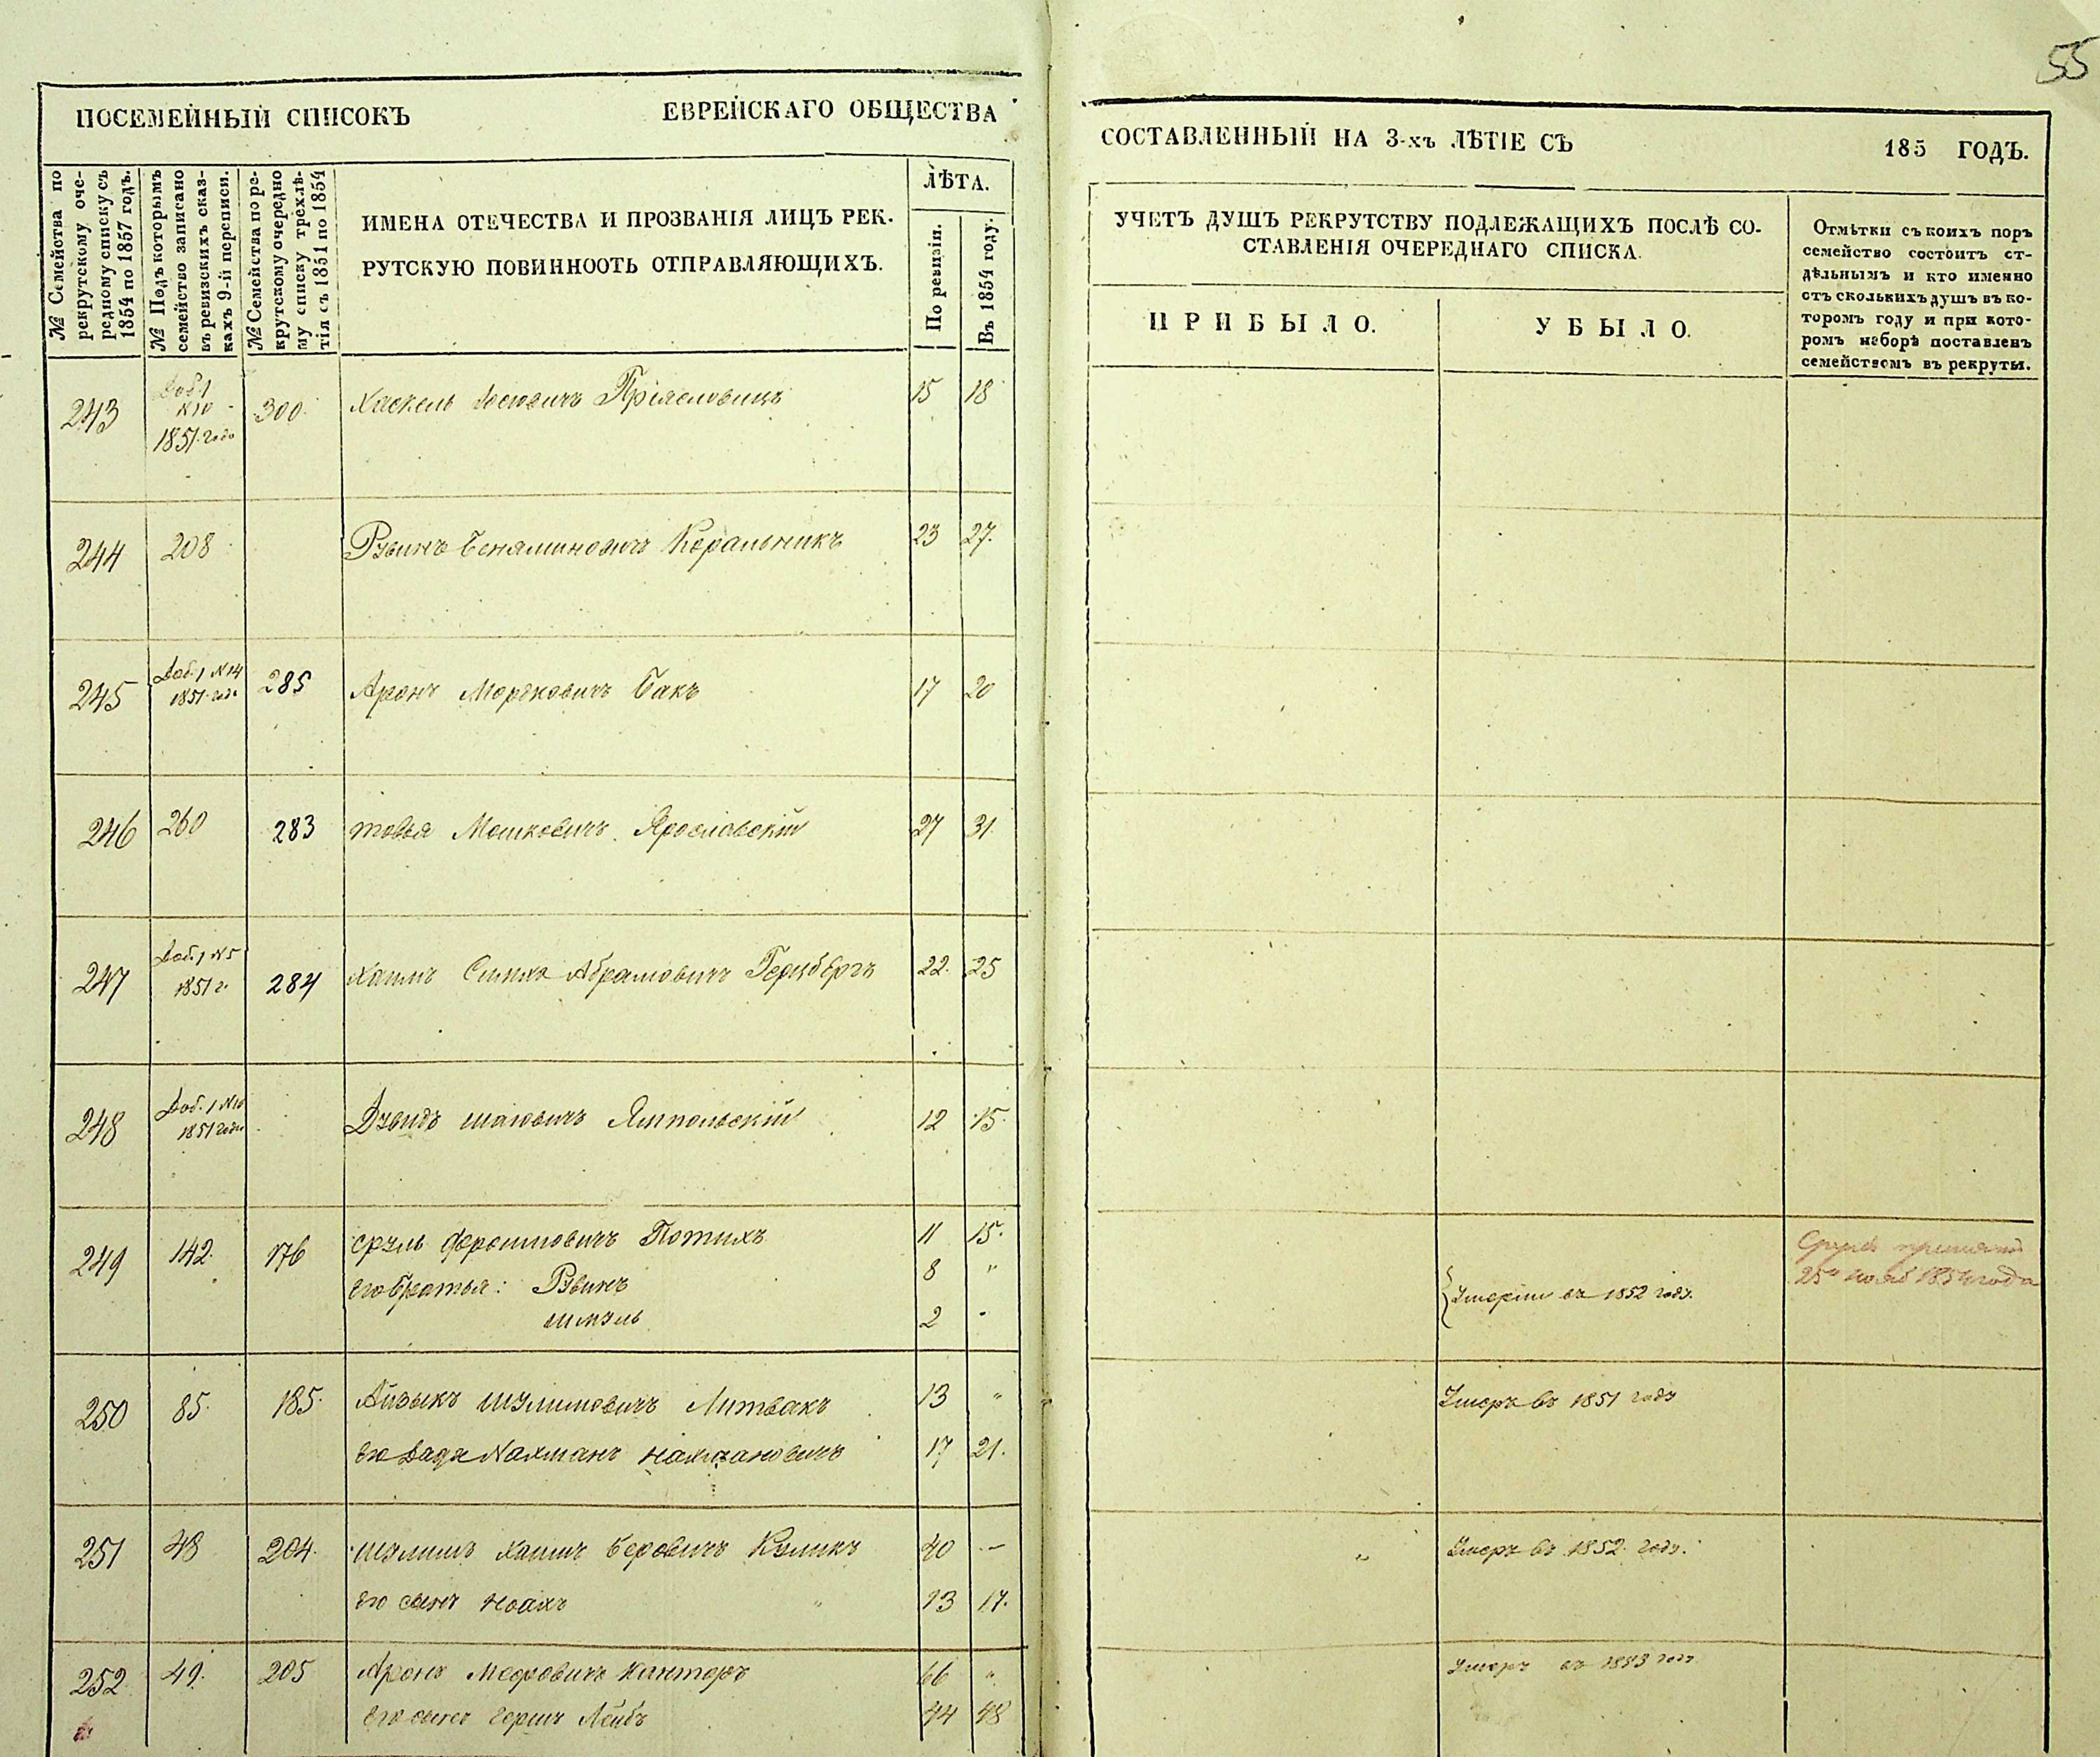 55
ПОСЕМЕЙНЫЙ СПИСОКЪ ЕВРЕЙСКАГО ОБЩЕСТВА
СОСТАВЛЕННЫЙ НА 3-хъ ЛѢТІЕ СЪ 185 ГОДЪ.
№ Семейства по
рекрутскому оче-
редному списку съ
1854 по 1857 годъ.
№ Подъ которымъ
семейство записано
въ ревизскихъ сказ-
кахъ 9-й переписи.
№ Семейства по ре-
крутскому очередно
му списку трехлѣ-
тія съ 1851 по 1854
ИМЕНА ОТЕЧЕСТВА И ПРОЗВАНІЯ ЛИЦЪ РЕК-
РУТСКУЮ ПОВИННООТЬ ОТПРАВЛЯЮЩИХЪ.
ЛѢТА.
По ревизіи.
Въ 1854 году.
УЧЕТЪ ДУШЪ РЕКРУТСТВУ ПОДЛЕЖАЩИХЪ ПОСЛѢ СО-
СТАВЛЕНІЯ ОЧЕРЕДНАГО СПИСКА.
ПРИБЫЛО.
УБЫЛО.
Отмѣтки съ коихъ поръ
семейство состоитъ от-
дѣльнымъ и кто именно
отъ сколькихъ душъ въ ко-
торомъ году и при кото-
ромъ наборѣ поставленъ
семействомъ въ рекруты.
243 Доб 1 300 Хаскель Іосіовичъ 15 18
N 10
1851 года
244 208 Рувинъ Беняминовичъ Коральникъ 23 27.
245 Доб. 1 N 14 285 Аронъ Моргковичъ Бакъ 17 20
1851 года
246 260 283 товія Мошковичъ Ярославскій 27 31.
247 Доб. 1 N 5 284 Хаимъ Симха Абрамовичъ Герцбергъ 22. 25
1851 г.
248 Доб. 1 N 10 Дувидъ шаіовичъ Ямпольскій 12 15.
1851 года
249 142. 176 сруль Фроимовичъ Потихъ 11 15.
его братья: Рувинъ 8 "
шмуль 2 "
Умерли въ 1852 году.
Сруль принятъ
25 нояб 1854 года
250 85. 185. Айзыкъ шулимовичъ Литвакъ 13 " Умеръ въ 1851 году
его дядя Нахманъ нахмановичъ 17 21.
251 48 204. шулимъ хаимъ Беровичъ Куликъ 40 - " Умеръ въ 1852 году.
его сынъ ноахъ 13 17.
252 49. 205 Аронъ Меировичъ Канторъ 66 " Умеръ въ 1853 году
его сынъ герш Лейбъ 44 48